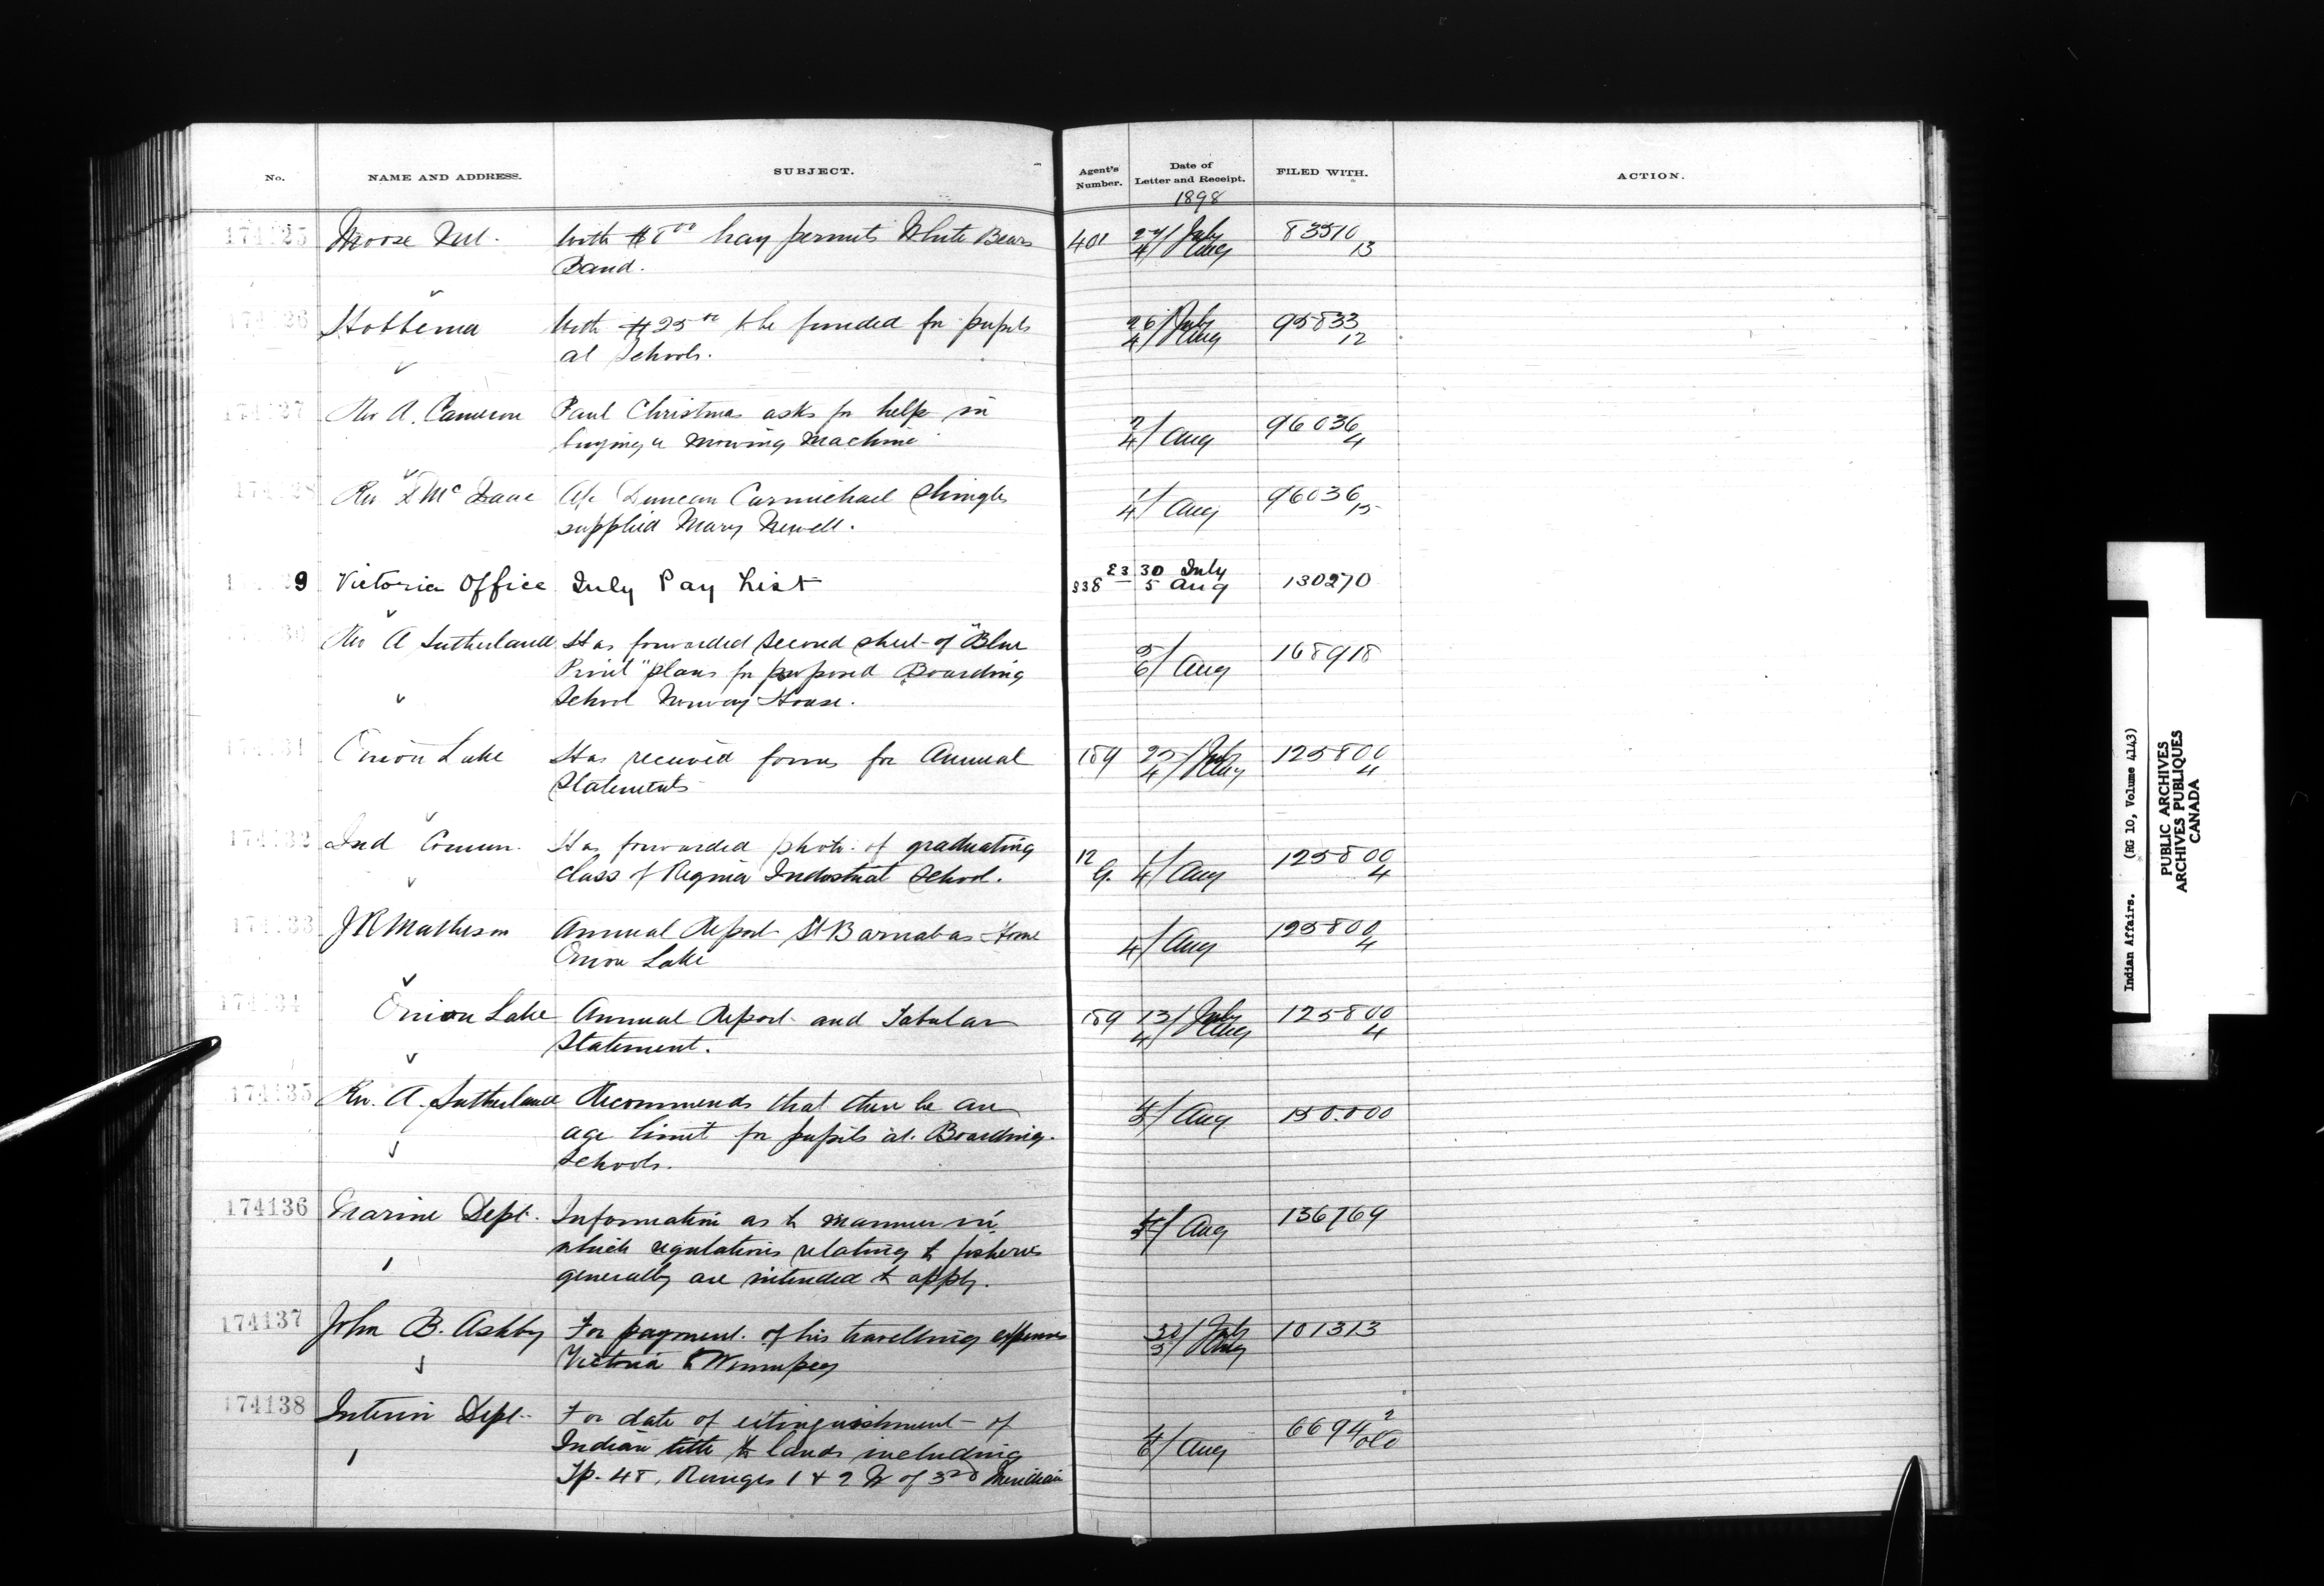 No. NAME AND ADDRESS. SUBJECT. Agent's Number. Date of Letter and Receipt. FILED WITH. ACTION.
1898
174125 Moose Mt. With $8 00 hay permits White Bears 401 27/July 4/Aug 83510 13
Band.
174126 Hobbema With $25 to be funded for pupils 26/July 4/Aug 95833 12
at Schools.
174127 Rev A. Cameron Paul Christmas asks for help in 2/4/Aug 96036 4
buying a mowing machine
174128 Rev D Mc Isaac A/c Duncan Carmichael shingles 1/4/Aug 96036 15
supplied Mary Newell.
174129 Victoria Office July Pay List 23 30 July 130270
338 5 Aug
174130 Rev A Sutherland Has forwarded second sheet of "Blue 5/6/Aug 168918
Print" plans for proposed Boarding
School Norway House.
174131 Onion Lake Has received forms for Annual 189 25/July 4/Aug 125800 4
Statements
174132 Ind Commr. Has forwarded photo. of graduating 12 G. 1/4/Aug 125800 4
class of Regina Industrial School.
174133 J R Matheson Annual Report St Barnabas Home 4/Aug 125800 4
Onion Lake
174134 Onion Lake Annual Report and Tabular 189 13/July 4/Aug 125800 4
Statement.
174135 Rev. A. Sutherland Recommends that there be an 4/5/Aug 150.000
age limit for pupils at Boarding
Schools.
174136 Marine Dept. Information as to manner in 4/5/Aug 136769
which regulations relating to fisheries
generally are intended to apply.
174137 John B. Ashby For payment of his travelling expenses 30/July 5/Aug 101313
Victoria to Winnipeg
174138 Interior Dept. For date of extinguishment of 4/6/Aug 66942
Indian title to lands including
Tp. 48, Ranges 1 & 2 W of 3rd Meridian
Indian Affairs. (RG 10, Volume 4143)
PUBLIC ARCHIVES
ARCHIVES PUBLIQUES
CANADA